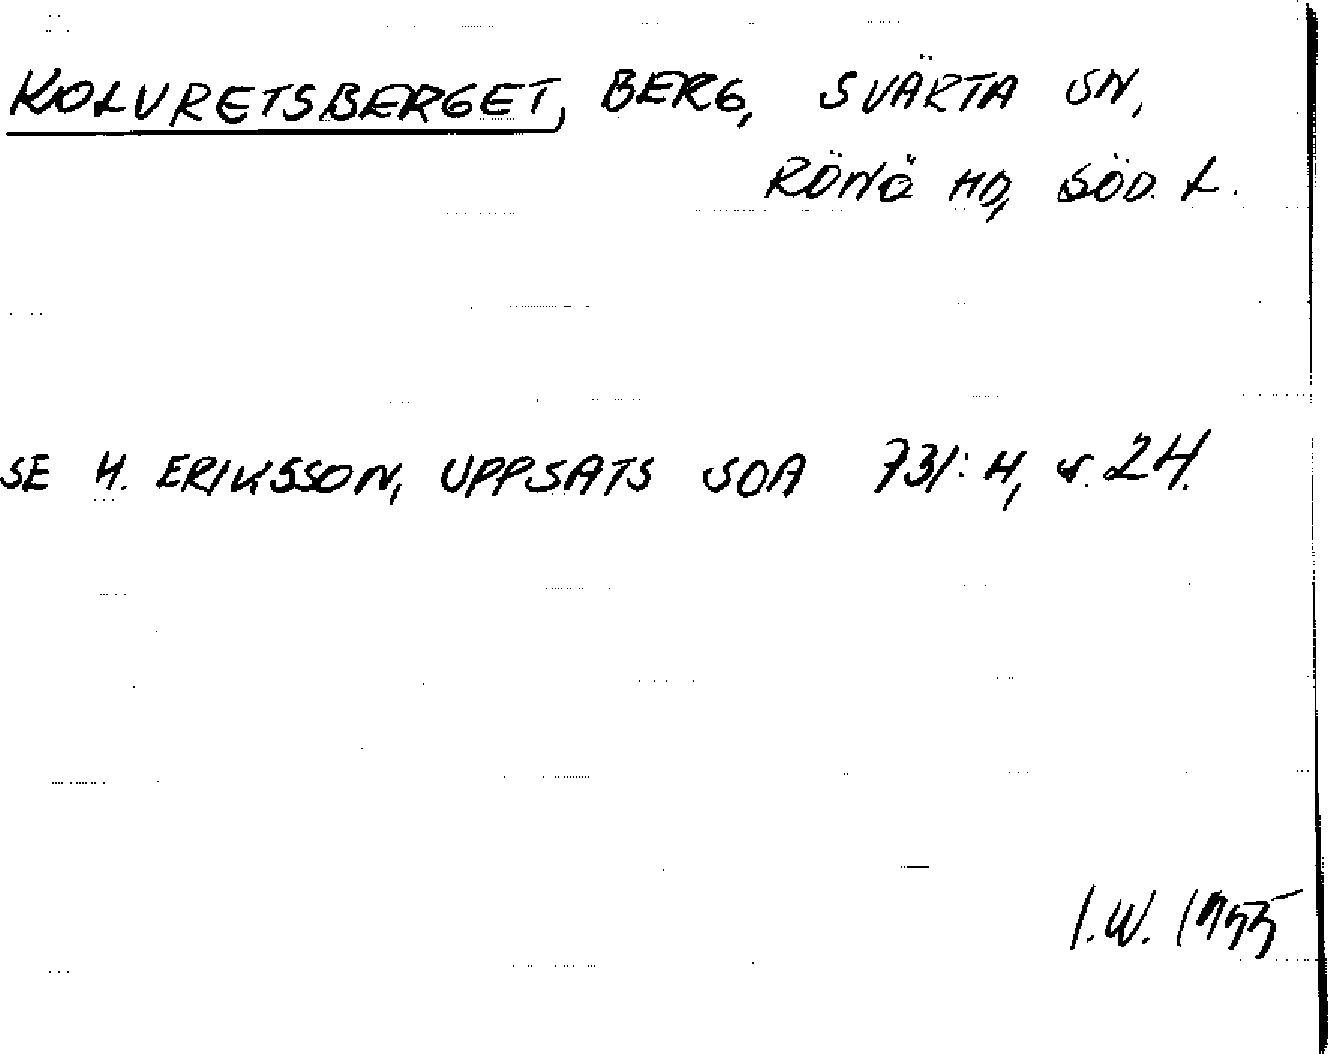 KOLVRETSBERGET, BERG, SVÄRTA SN,
RÖNÖ HD, SÖD. L.
SE H. ERIKSSON, UPPSATS SOA 731:H, s. 24.
I.W. 1955